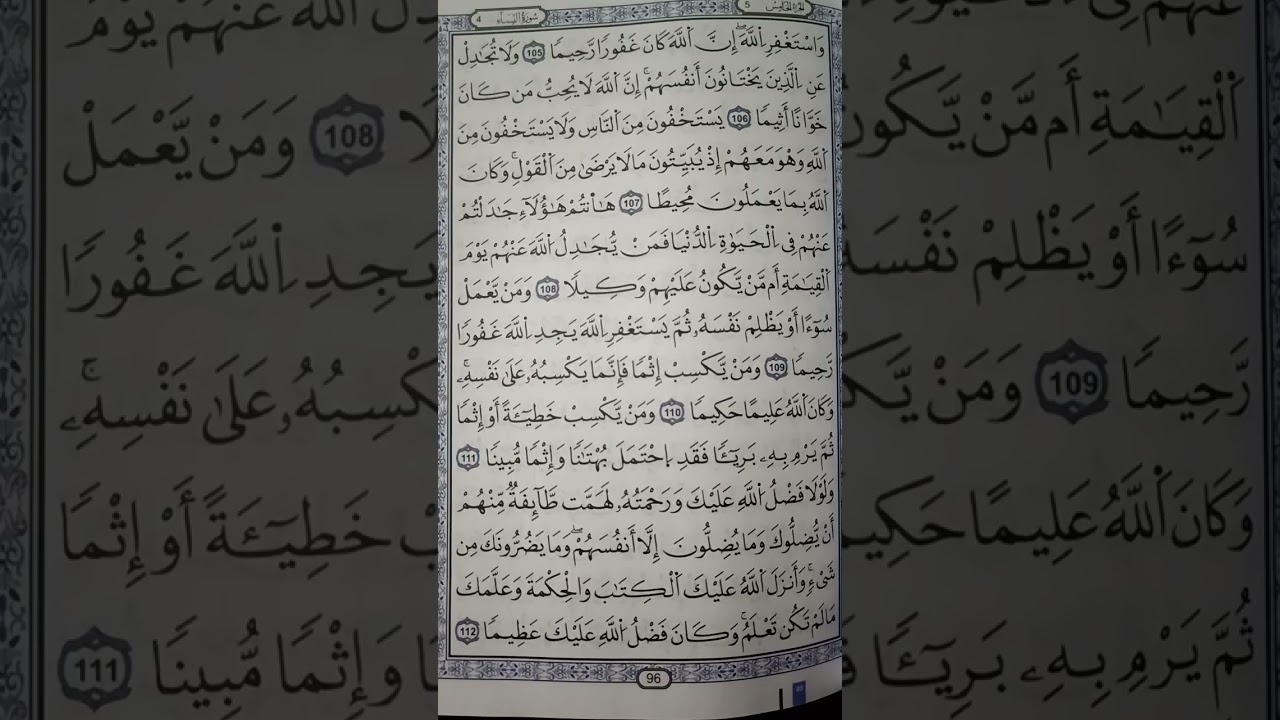 4 سُورَةُ النِّسَاءِ
الجُزْءُ الخَامِسُ 5
وَاسْتَغْفِرِ اِللَّهَ إِنَّ اَللَّهَ كَانَ غَفُورًا رَّحِيمًا 105 وَلَا تُجَٰدِلْ
عَنِ اِلَّذِينَ يَخْتَانُونَ أَنفُسَهُمْ إِنَّ اَللَّهَ لَا يُحِبُّ مَن كَانَ
خَوَّانًا أَثِيمًا 106 يَسْتَخْفُونَ مِنَ اَلنَّاسِ وَلَا يَسْتَخْفُونَ مِنَ
اَللَّهِ وَهْوَ مَعَهُمْ إِذْ يُبَيِّتُونَ مَا لَا يَرْضَىٰ مِنَ اَلْقَوْلِ وَكَانَ
اَللَّهُ بِمَا يَعْمَلُونَ مُحِيطًا 107 هَٰٓأَنتُمْ هَٰٓؤُلَآءِ جَٰدَلْتُمْ
عَنْهُمْ فِي اِلْحَيَوٰةِ اِلدُّنْيَا فَمَنْ يُّجَٰدِلُ اُللَّهَ عَنْهُمْ يَوْمَ
اَلْقِيَٰمَةِ أَم مَّنْ يَّكُونُ عَلَيْهِمْ وَكِيلًا 108 وَمَنْ يَّعْمَلْ
سُوٓءًا أَوْ يَظْلِمْ نَفْسَهُۥ ثُمَّ يَسْتَغْفِرِ اِللَّهَ يَجِدِ اِللَّهَ غَفُورًا
رَّحِيمًا 109 وَمَنْ يَّكْسِبْ إِثْمًا فَإِنَّمَا يَكْسِبُهُۥ عَلَىٰ نَفْسِهِۦ
وَكَانَ اَللَّهُ عَلِيمًا حَكِيمًا 110 وَمَنْ يَّكْسِبْ خَطِيٓـَٔةً أَوْ إِثْمًا
ثُمَّ يَرْمِ بِهِۦ بَرِيٓـًٔا فَقَدِ اِحْتَمَلَ بُهْتَٰنًا وَإِثْمًا مُّبِينًا 111
وَلَوْلَا فَضْلُ اُللَّهِ عَلَيْكَ وَرَحْمَتُهُۥ لَهَمَّت طَّآئِفَةٌ مِّنْهُمْ
أَنْ يُّضِلُّوكَ وَمَا يُضِلُّونَ إِلَّا أَنفُسَهُمْ وَمَا يَضُرُّونَكَ مِن
شَيْءٍ وَأَنزَلَ اَللَّهُ عَلَيْكَ اَلْكِتَٰبَ وَالْحِكْمَةَ وَعَلَّمَكَ
مَا لَمْ تَكُن تَعْلَمُ وَكَانَ فَضْلُ اُللَّهِ عَلَيْكَ عَظِيمًا 112
96